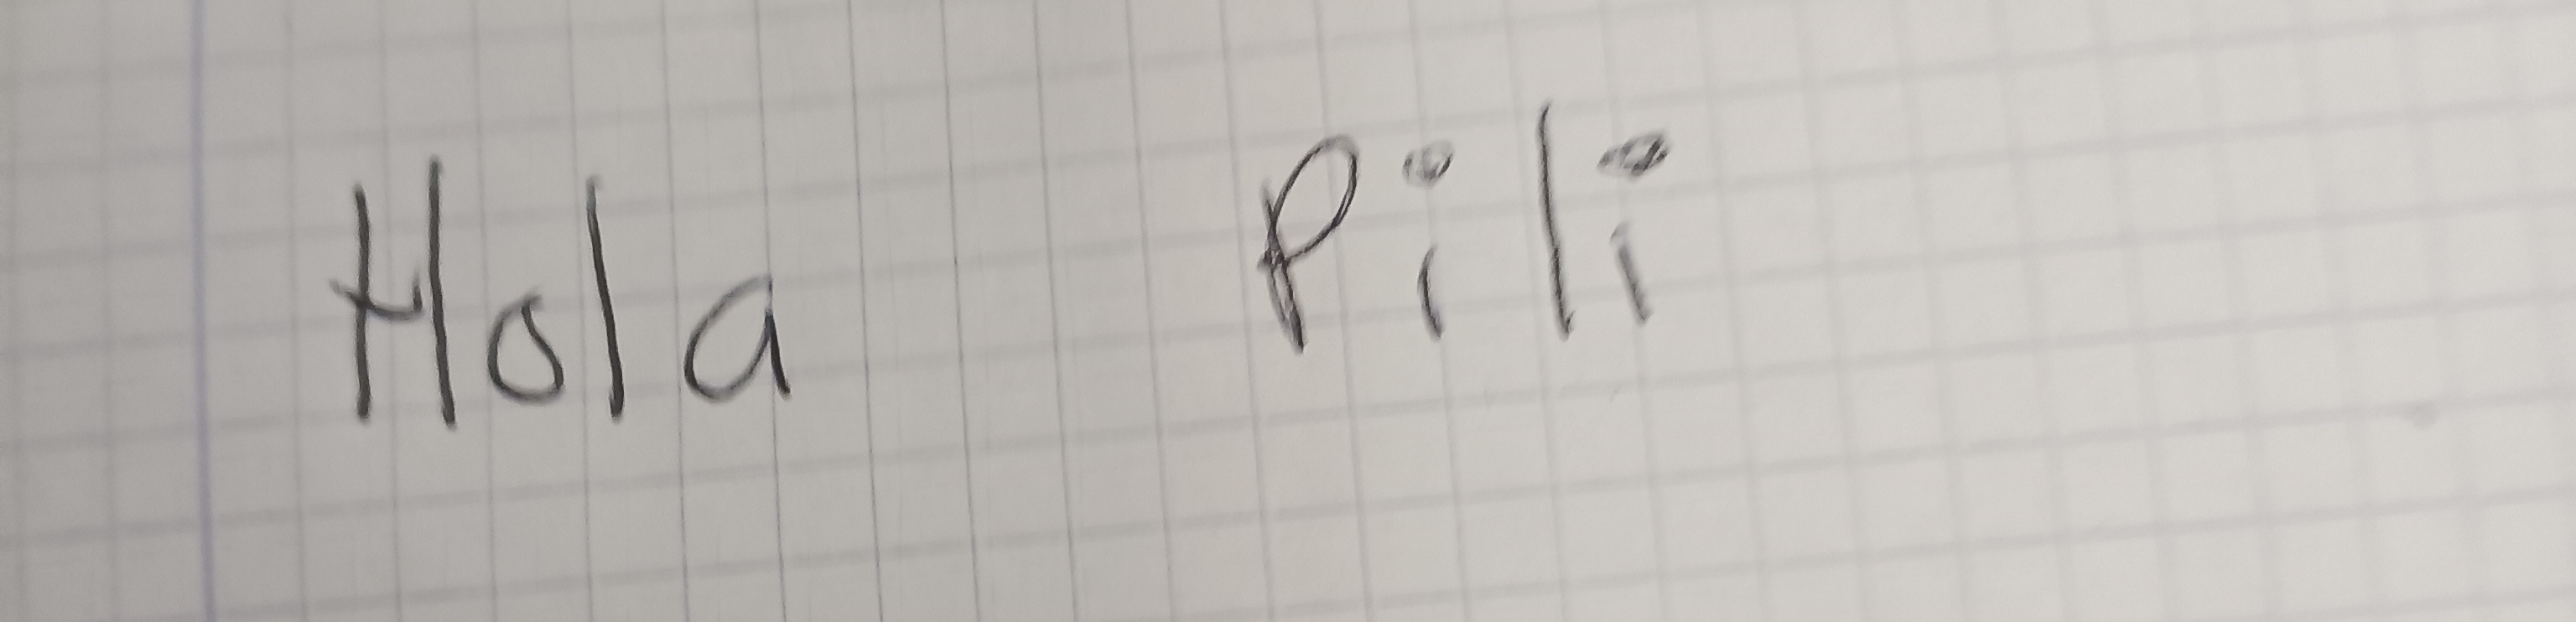 Hola Pili